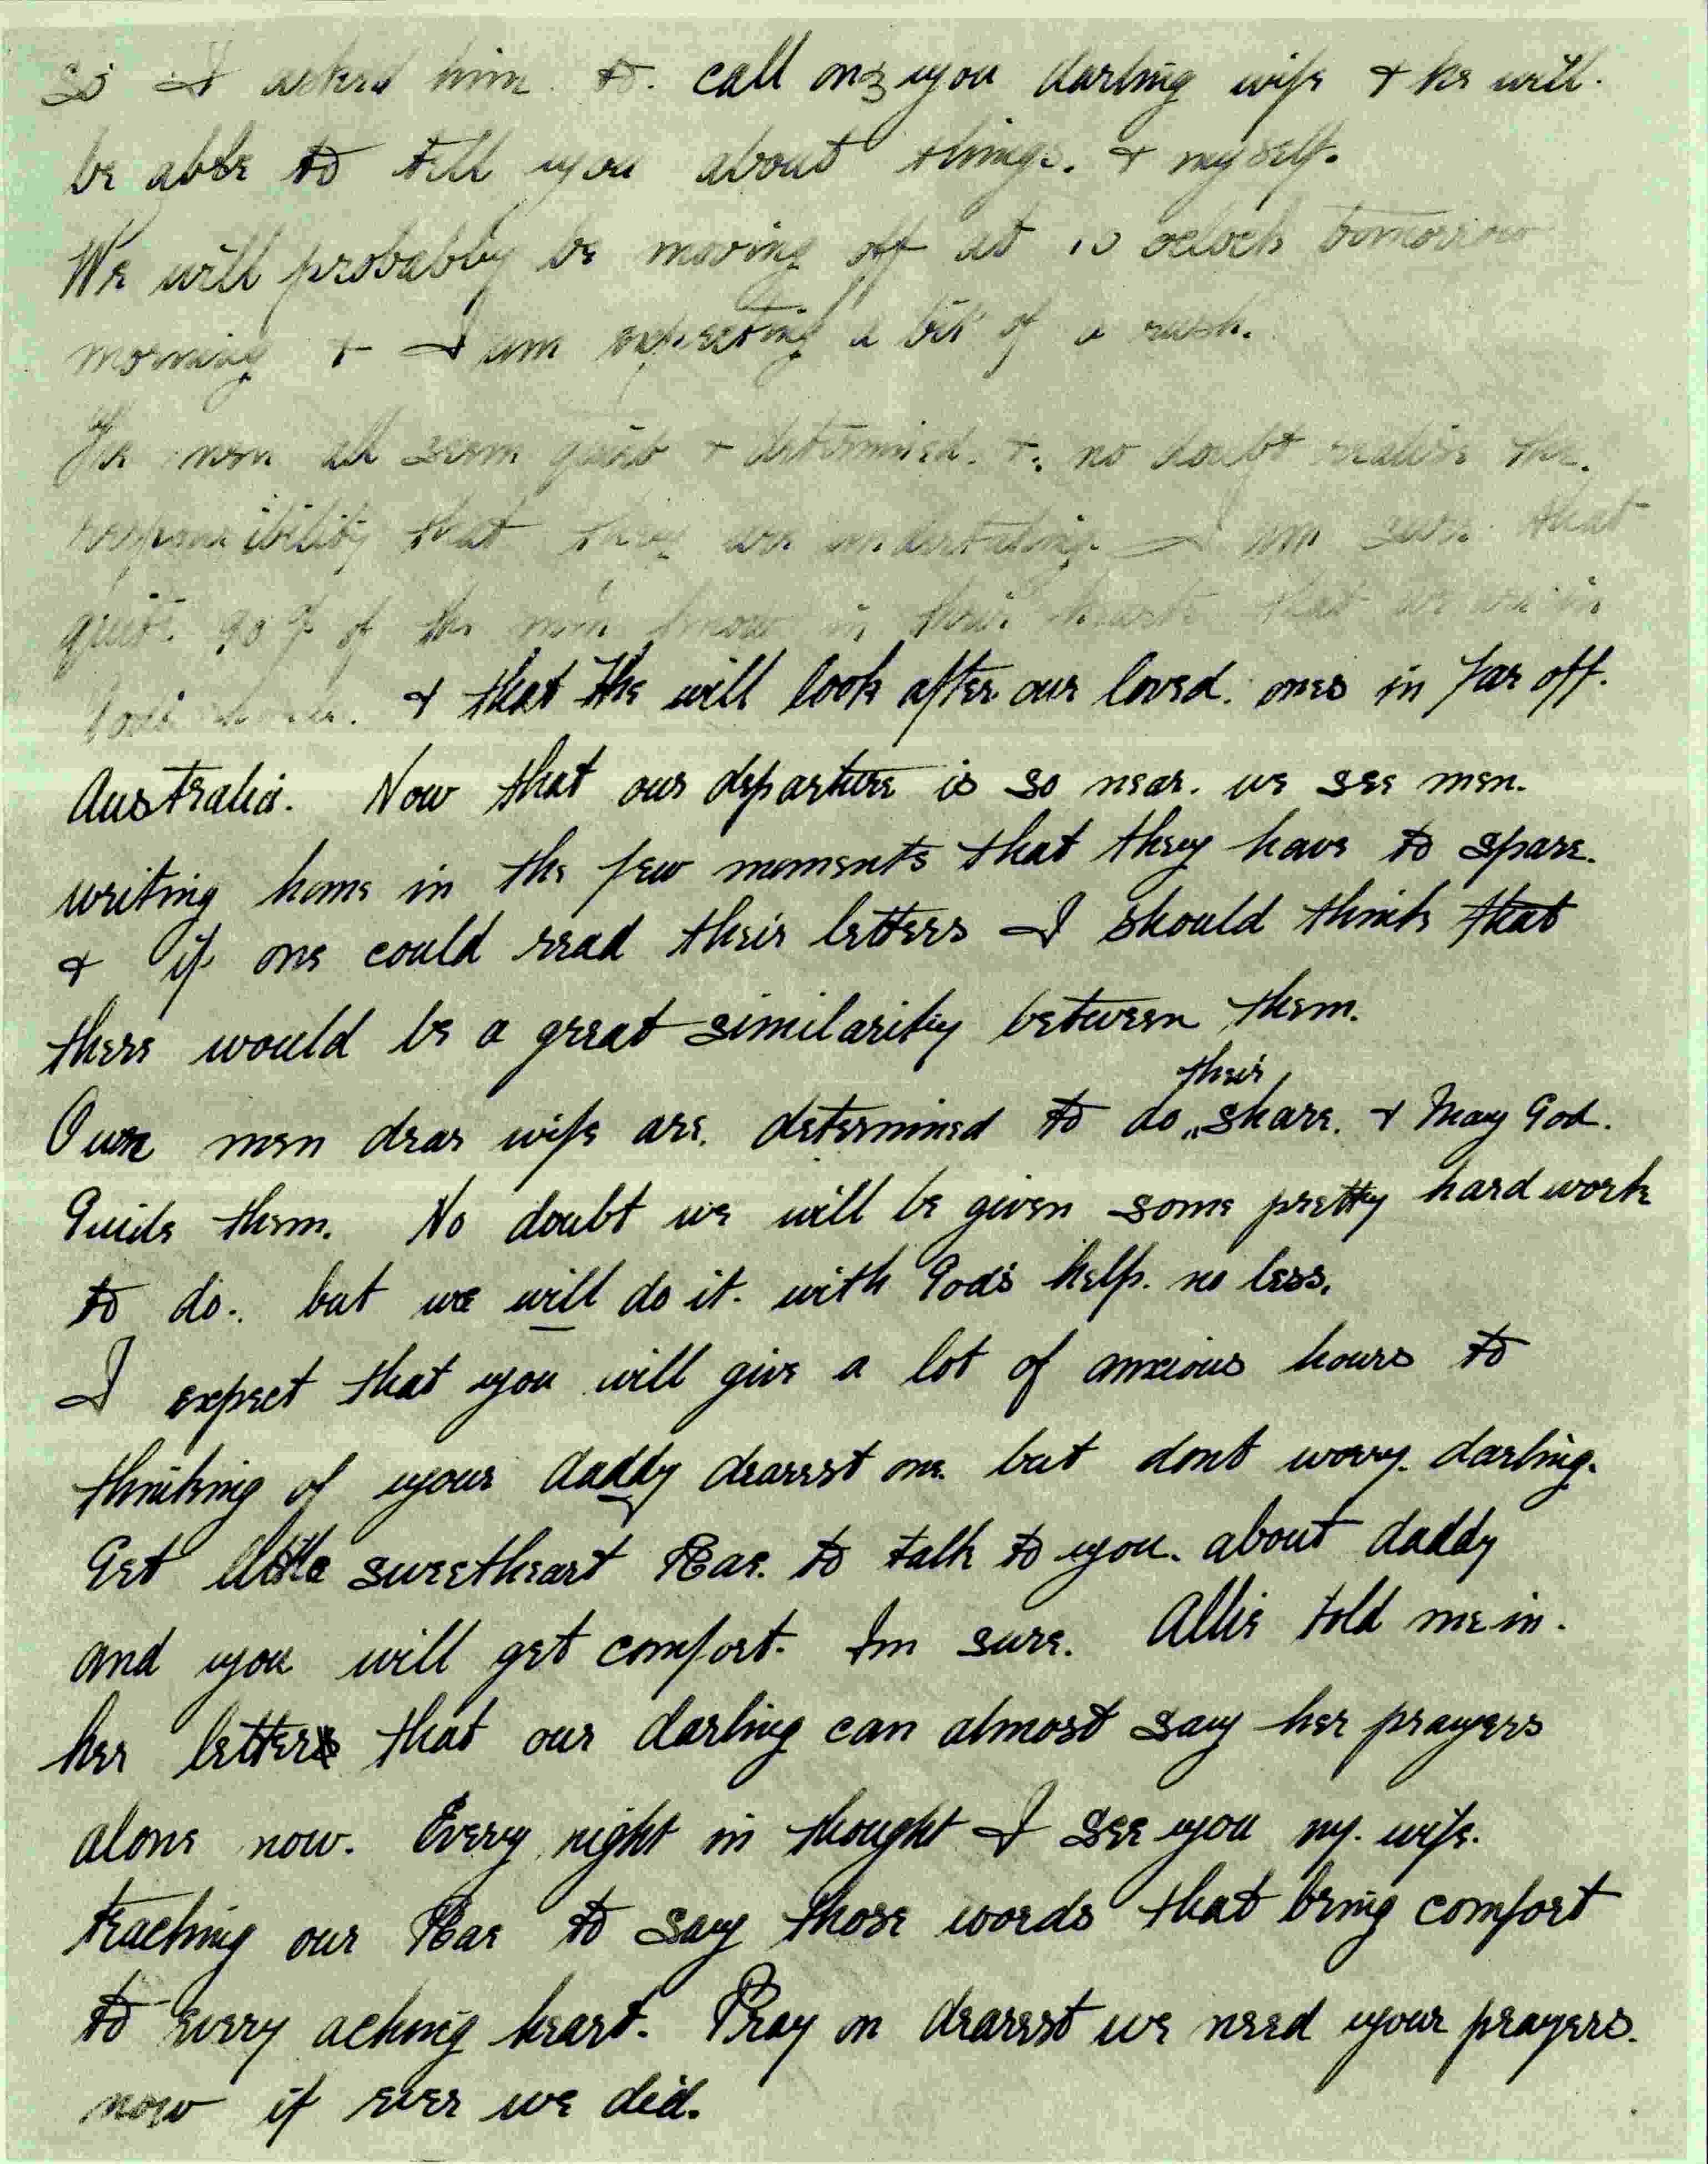 so I asked him to. call on you darling wife & he will.
be able to tell you about things. & myself.
We will probabbly be moving off at 10 oclock tomorrow
morning & I am expecting a bit of a rush.
The men all seem quiet & determined. &. no doubt realise the.
responsibility that they are undertaking. I am sure that
quite 90% of the men know in their hearts that we are in
Gods hands. & that He will look after our loved. ones in far off.
Australia. Now that our departure is so near. we see men.
writing home in the few moments that they have to spare.
& if one could read their letters I should think that
there would be a great similarity between them.
Our men dear wife are. determined to do their share. & May God.
Guide them. No doubt we will be given some pretty hard work
to do. but we will do it. with God's help. no less.
I expect that you will give a lot of anxious hours to
thinking of your daddy dearest one. but dont worry. darling.
Get little sweetheart Rae. to talk to you. about daddy
and you will get comfort. Im sure. Allie told me in.
her letter that our darling can almost say her prayers
alone now. Every night in thought I see you my. wife.
teaching our Rae to say those words that bring comfort
to every aching heart. Pray on dearest we need your prayers.
now if ever we did.